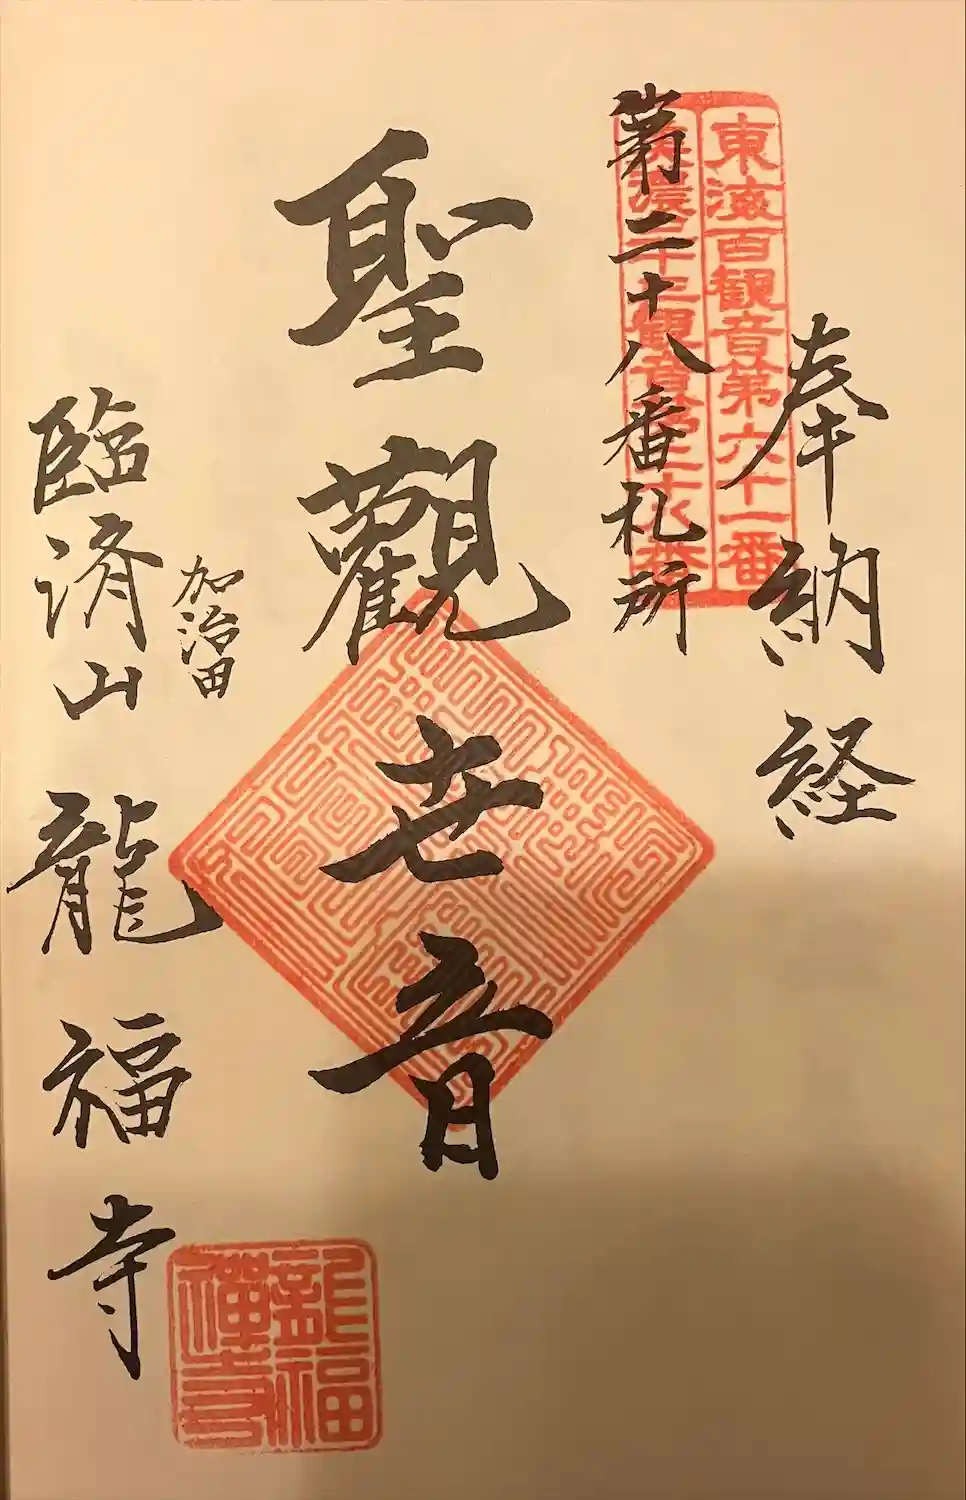 奉納経
東海百観音第六十一番
美濃三十三観音第二十八番
第二十八番札所
聖觀世音
加治田
臨済山龍福寺
龍福禅寺